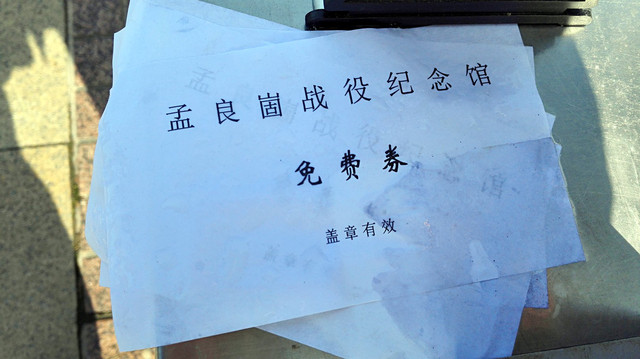 孟良崮战役纪念馆
免费券
盖章有效